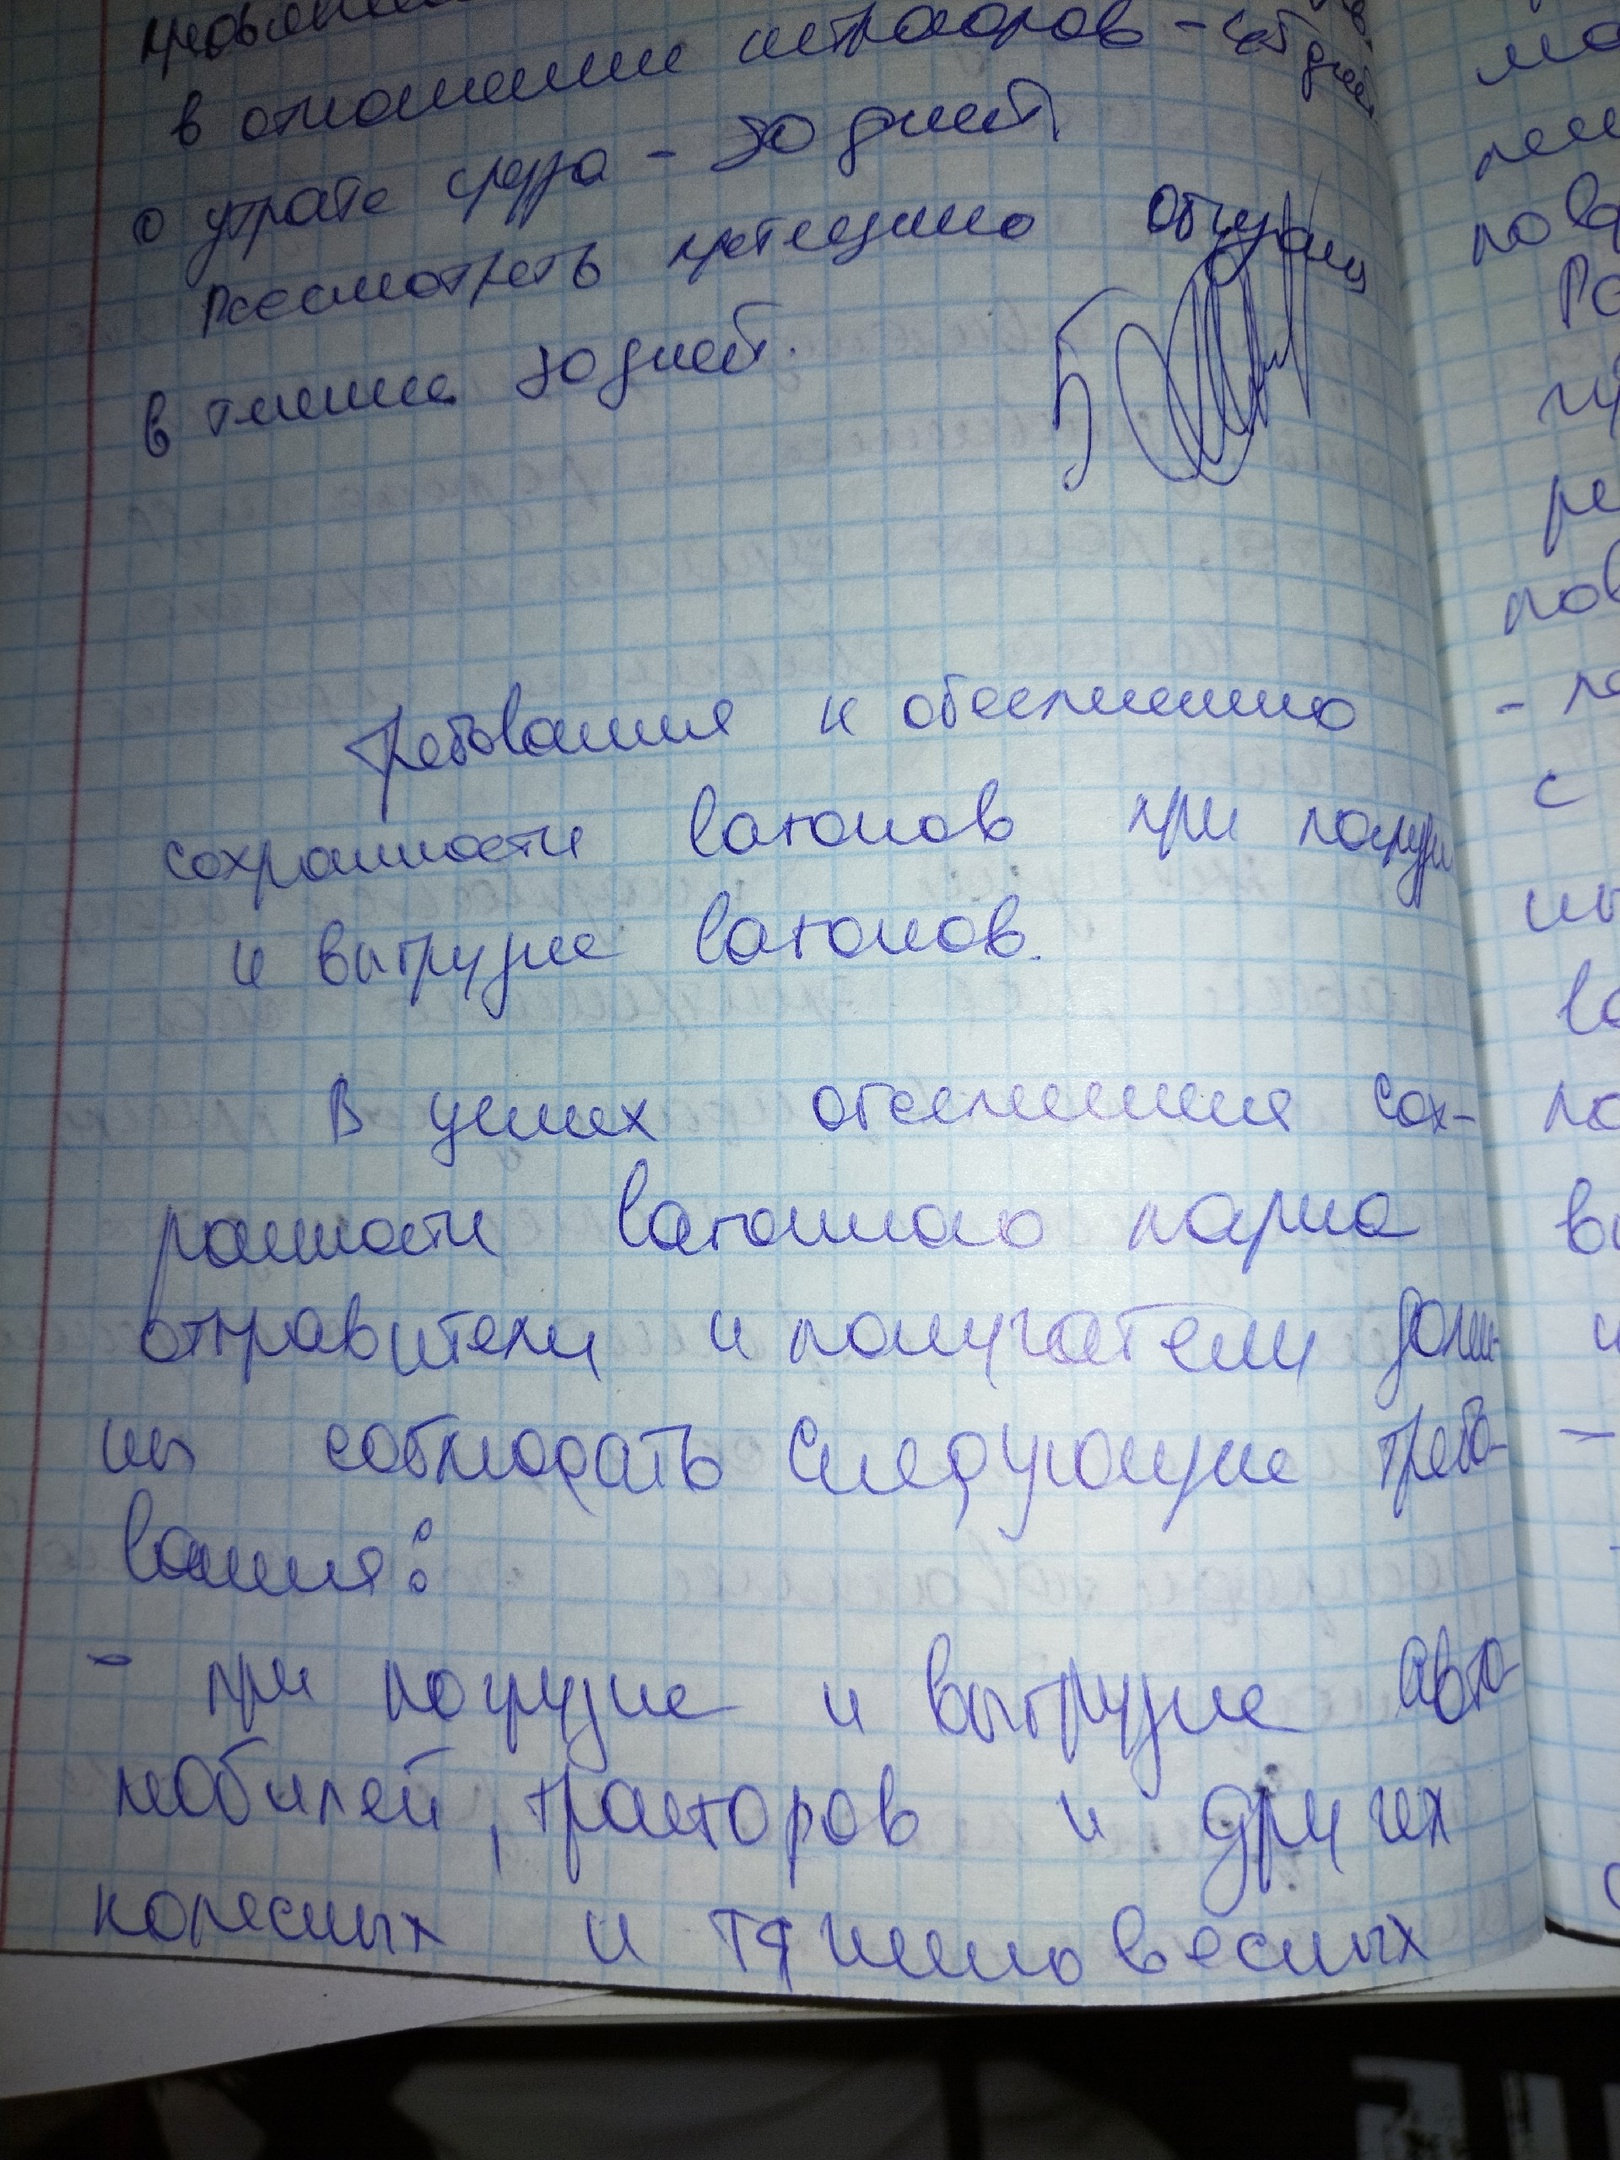 в отношении штрафов - 45 дней
о утрате груза - 30 дней
Рассмотреть претензию обязаны
в течение 30 дней.
Требования к обеспечению
сохранности вагонов при погрузке
и выгрузке вагонов.
В целях обеспечения сох-
ранности вагонного парка
отправители и получатели долж-
ны соблюдать следующие требо-
вания:
- при погрузке и выгрузке авто-
мобилей, тракторов и других
колесных и тяжеловесных